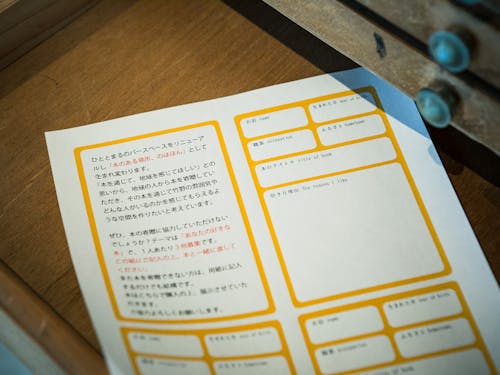 ひととまるのバースペースをリニューア
ルし「本のある場所、のはほん」として
生まれ変わります。
「本を通じて、地域を感じてほしい」との
思いから、地域の人から本を寄贈してい
ただき、その本を通じて竹野の雰囲気や
どんな人がいるのかを感じてもらえるよ
うな空間を作りたいと考えています。
ぜひ、本の寄贈に協力していただけない
でしょうか？テーマは「あなたの好きな
本」で、1人あたり3冊募集です。
この紙にご記入の上、本と一緒に渡して
ください。
また本を寄贈できない方は、用紙に記入
するだけでも結構です。
本はこちらで購入の上、展示させていた
だきます。
ご協力よろしくお願いします。
お名前 name
生まれた年 Year of Birth
職業 occupation
ふるさと hometown
本のタイトル title of book
好きな理由 The reason I like
お名前 name
生まれた年 Year of Birth
職業 occupation
ふるさと hometown
お名前 name
生まれた年 Year of Birth
職業 occupation
ふるさと hometown